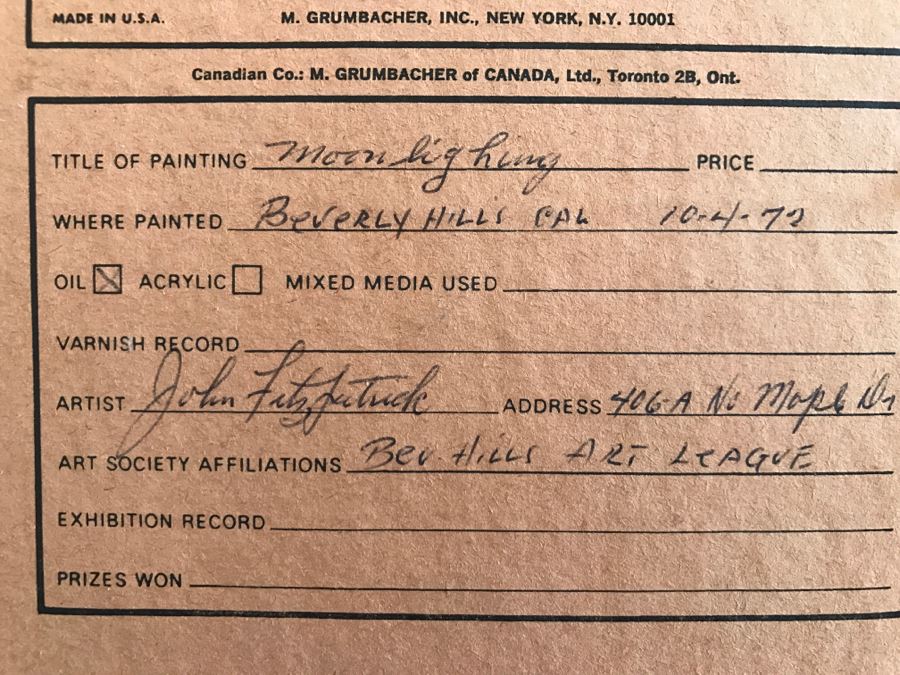 MADE IN U.S.A. M. GRUMBACHER, INC., NEW YORK, N.Y. 10001
Canadian Co.: M. GRUMBACHER of CANADA, Ltd., Toronto 2B, Ont.
TITLE OF PAINTING Moonlighing PRICE
WHERE PAINTED BEVERLY HILLS CAL 10-4-72
OIL ☒ ACRYLIC ☐ MIXED MEDIA USED
VARNISH RECORD
ARTIST John Fitzpatrick ADDRESS 406-A No Maple Dr
ART SOCIETY AFFILIATIONS BEV. HILLS ART LEAGUE
EXHIBITION RECORD
PRIZES WON